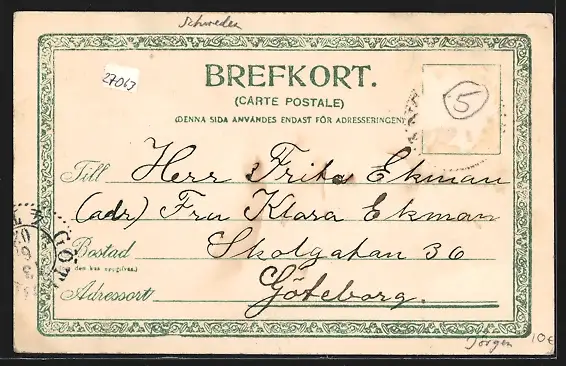 Schweden
27063
BREFKORT.
(CARTE POSTALE)
(DENNA SIDA ANVÄNDES ENDAST FÖR ADRESSERINGEN)
5
Till Herr Fritz Ekman
(adr) Fru Klara Ekman
Bostad Skolgatan 36
(om den kan uppgifvas.)
Adressort Göteborg.
GÖT
Jörgen 10€